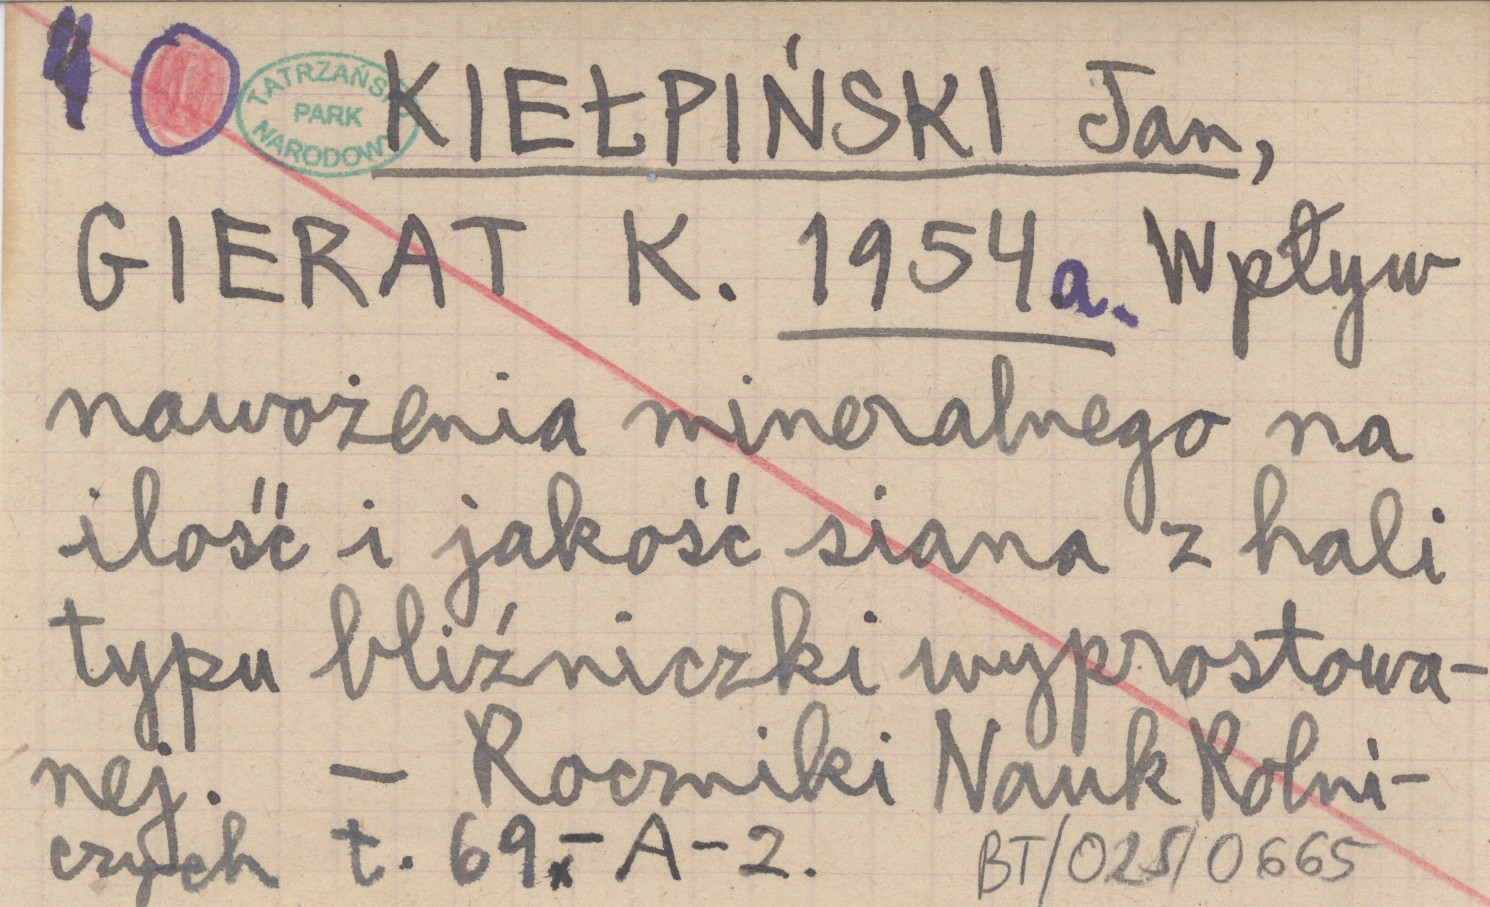 TATRZAŃSKI
PARK
NARODOWY
KIEŁPIŃSKI Jan,
GIERAT K. 1954a. Wpływ
nawożenia mineralnego na
ilość i jakość siana z hali
typu bliźniczki wyprostowa-
nej. - Roczniki Nauk Rolni-
czych t. 69.- A-2.
BT/025/0665